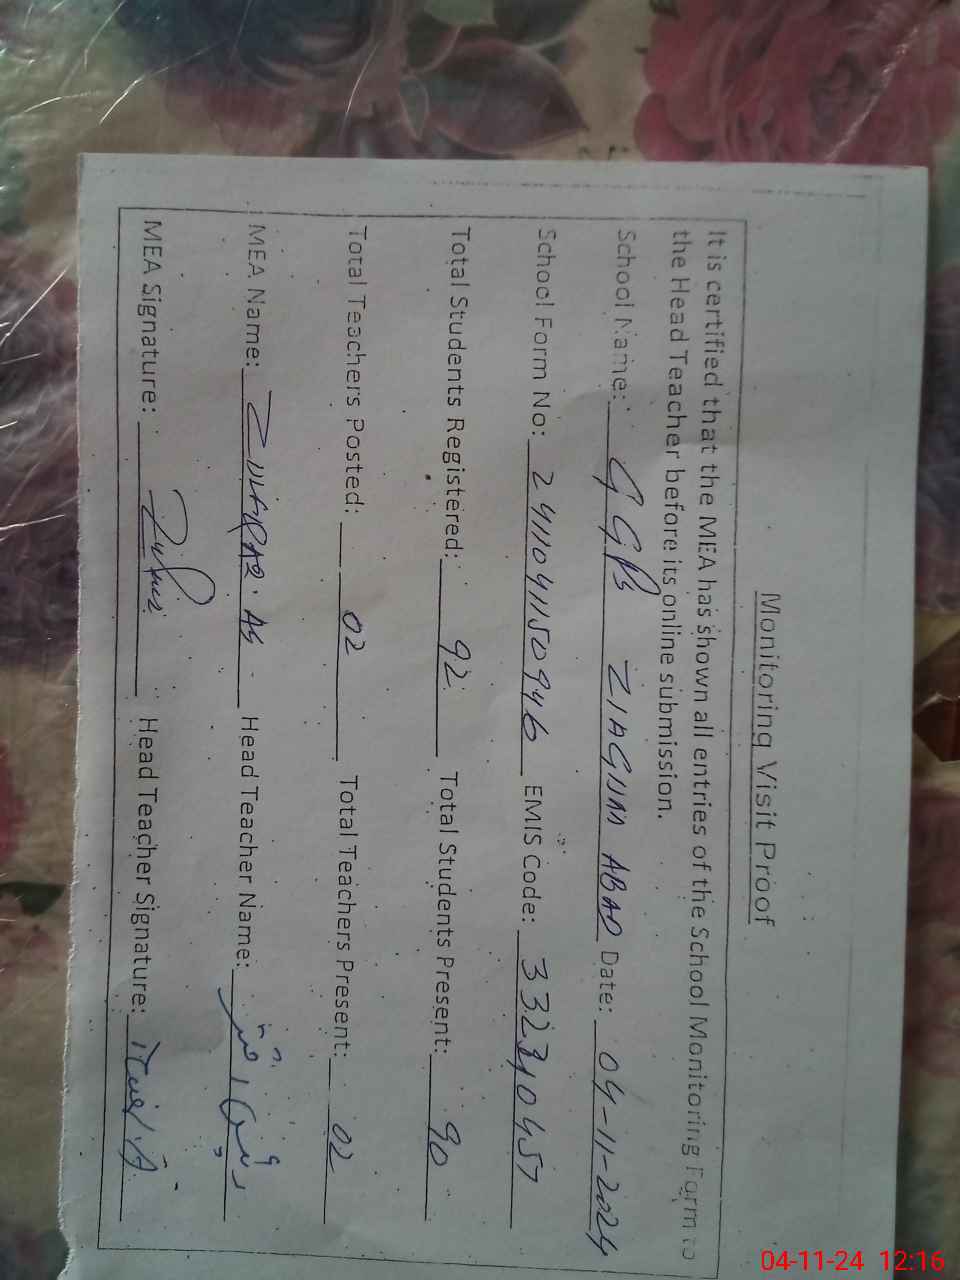 Monitoring Visit Proof
It is certified that the MEA has shown all entries of the School Monitoring Form to
the Head Teacher before its online submission.
School Name: GGPS ABAD Date: 04-11-2024
School Form No: 2411041150946 EMIS Code: 33230457
Total Students Registered: 92 Total Students Present: 90
Total Teachers Posted: 02 Total Teachers Present: 02
MEA Name: ZULFIQAR. AS Head Teacher Name:
MEA Signature: Head Teacher Signature:
04-11-24 12:16